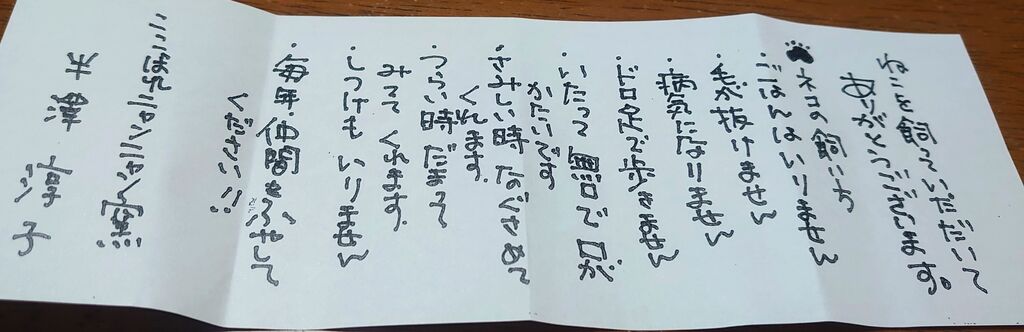 ねこを飼っていただいて
ありがとうございます。
ネコの飼い方
・ごはんはいりません
・毛が抜けません
・病気になりません
・ドロ足で歩きません
・いたって無口で口が
かたいです
・さみしい時なぐさめて
くれます。
・つらい時だまって
みてくれます。
・しつけもいりません
・毎年仲間をふやして
ください!!